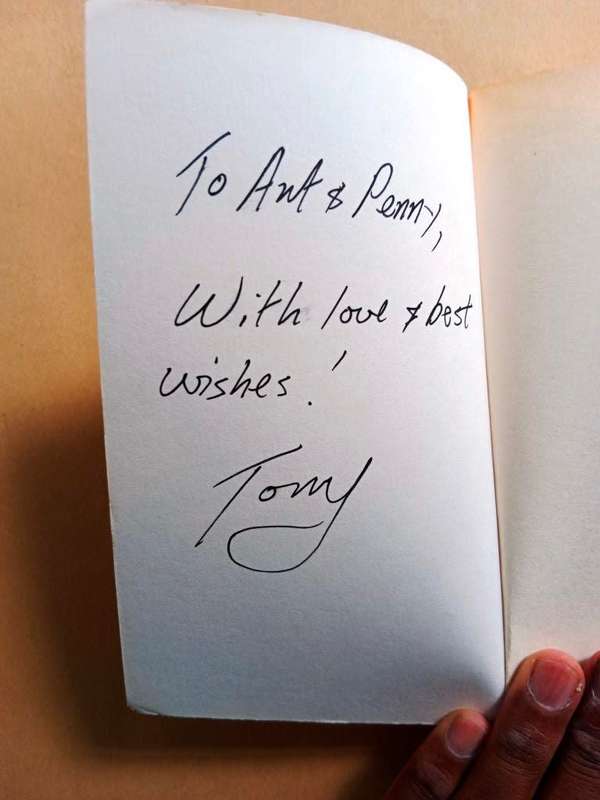 To Ant & Penny,
With love & best
wishes!
Tony